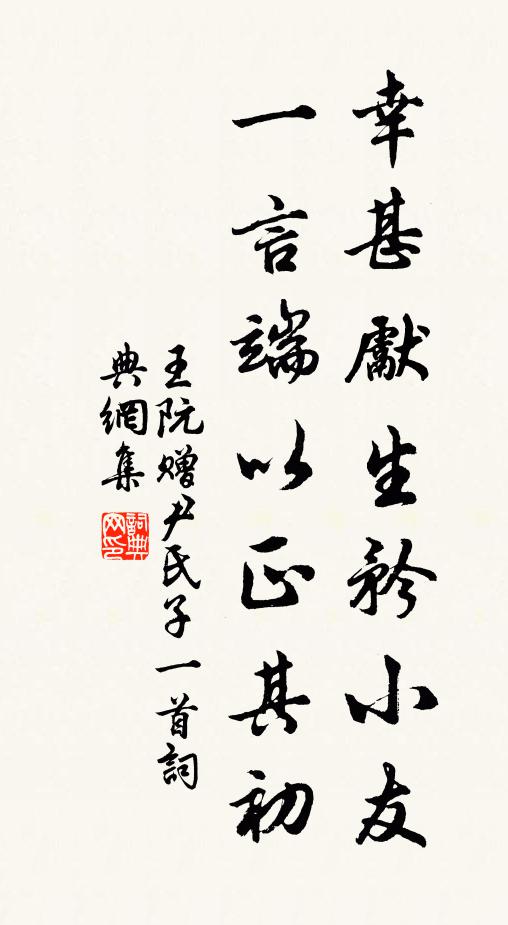 幸甚獻生矜小友
一言端以正其初
王阮贈尹氏子一首詞
典網集
詞典網印